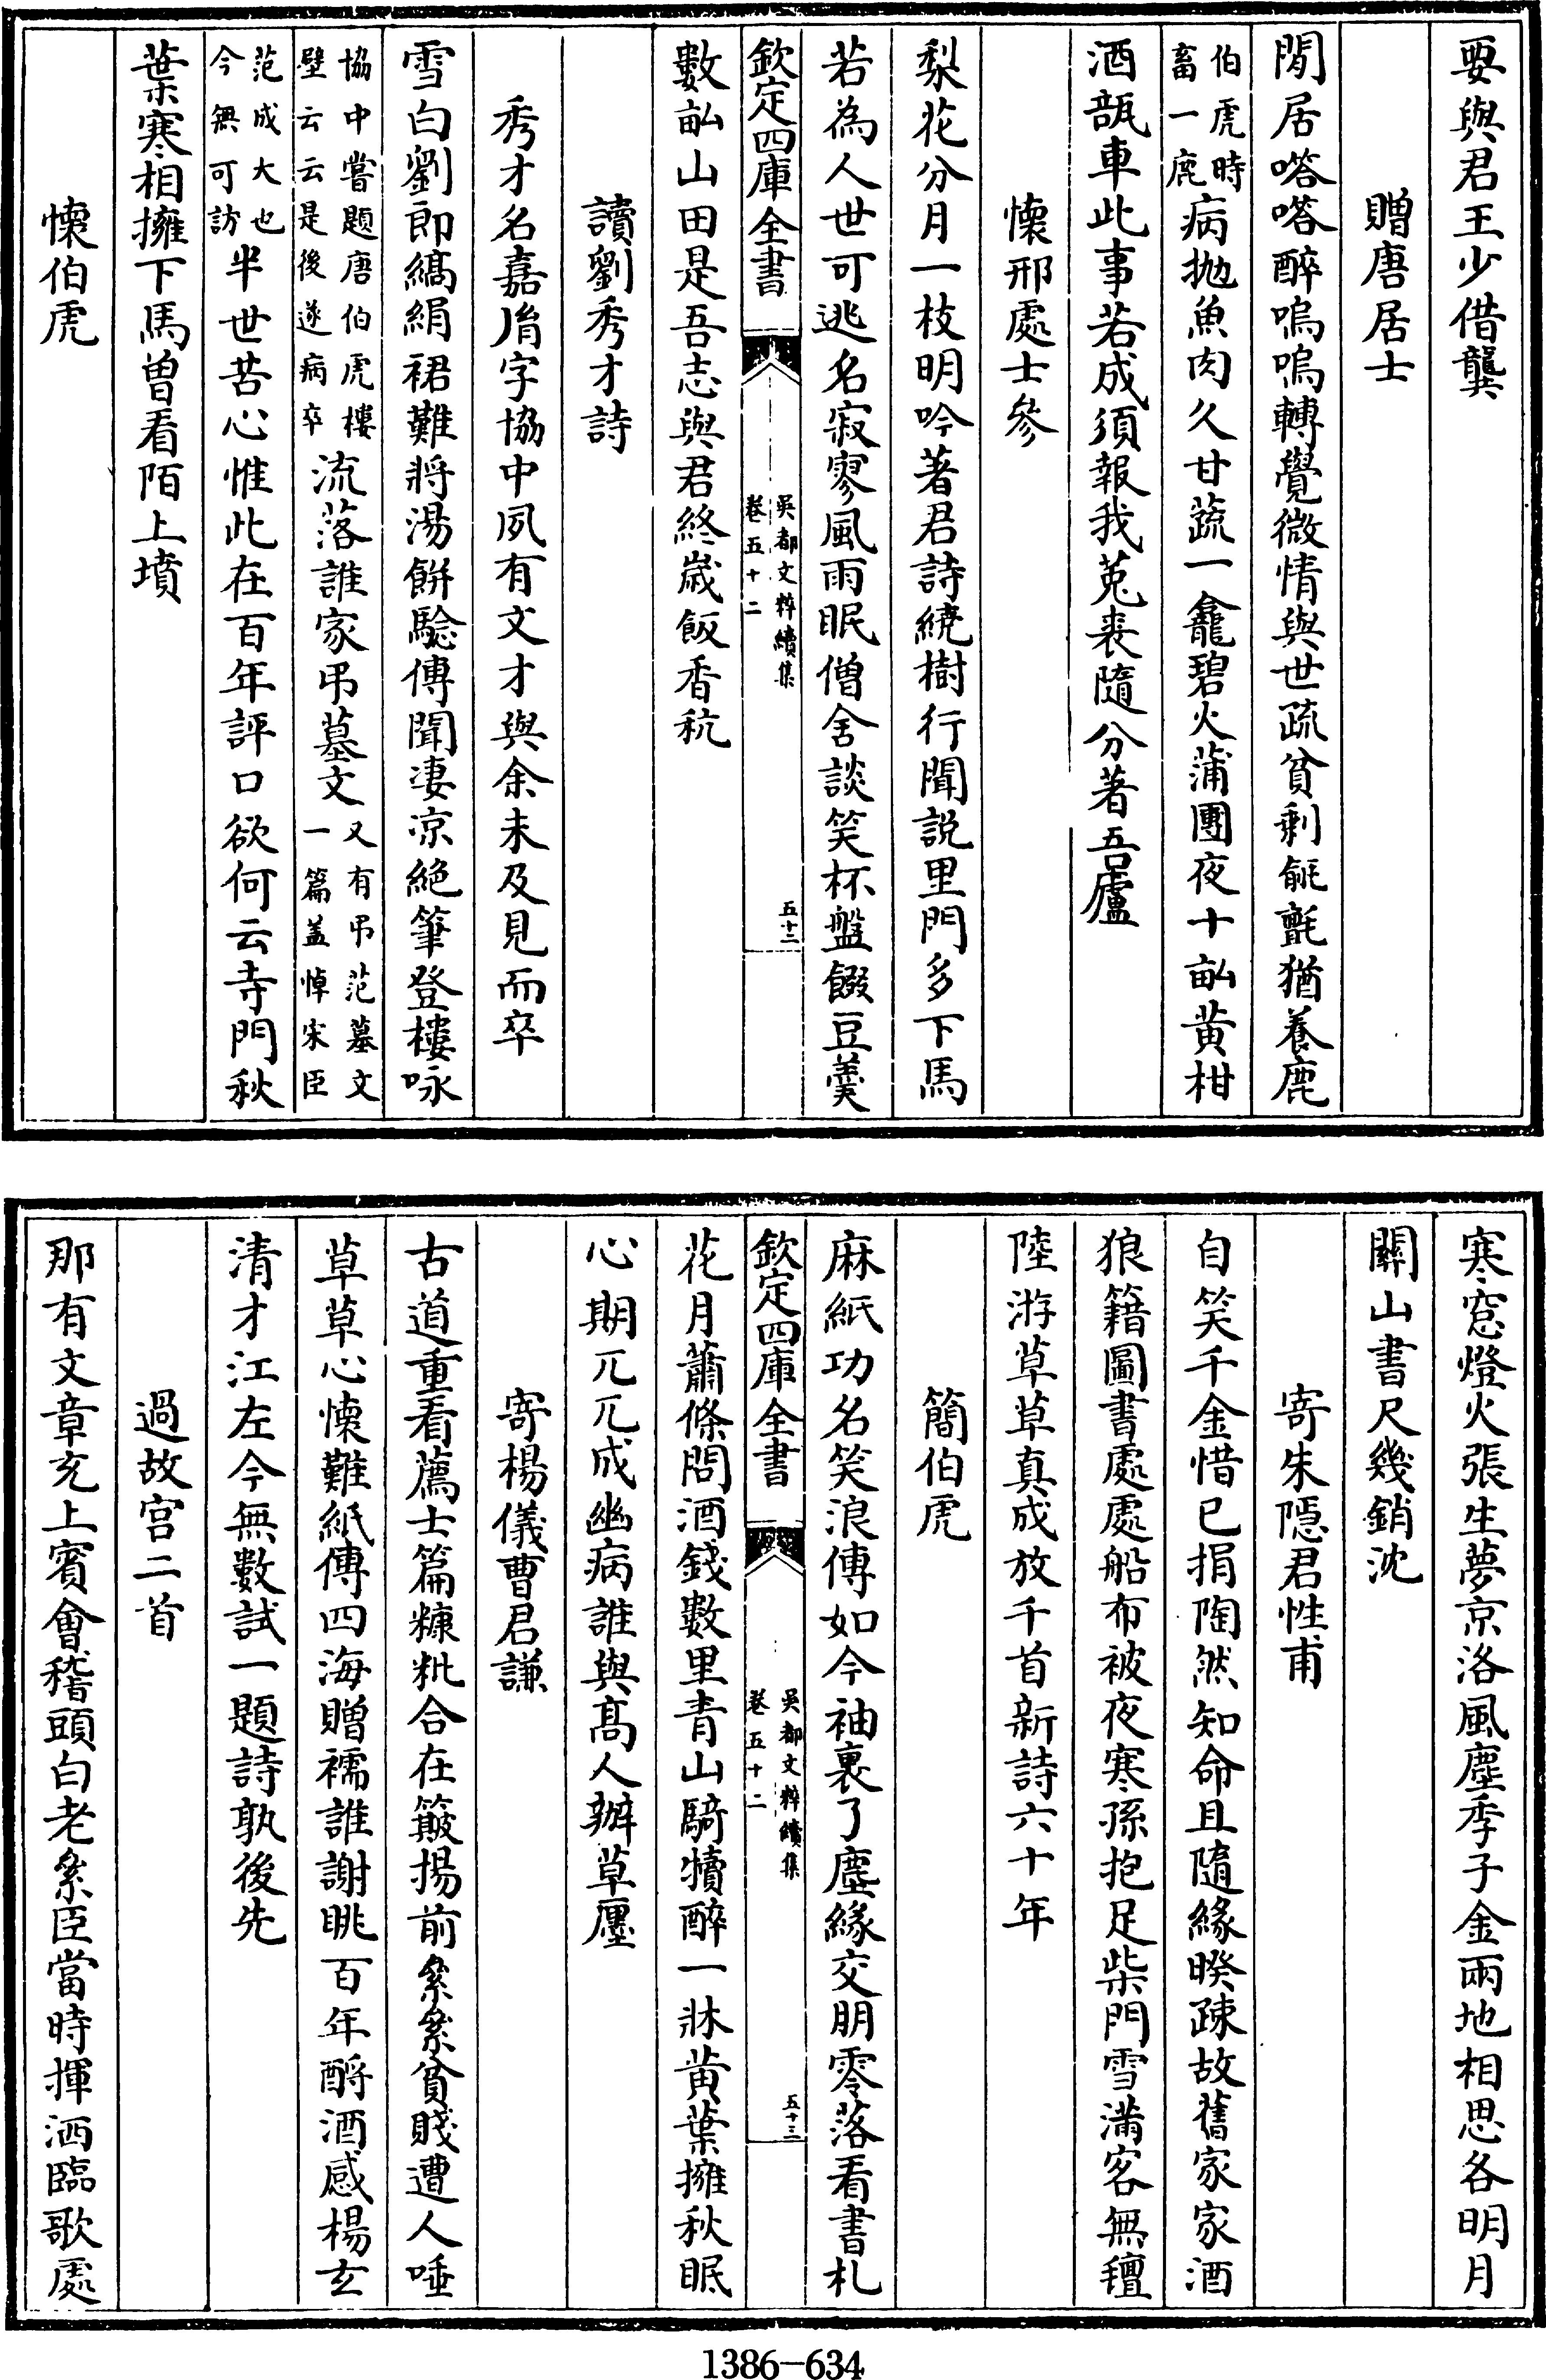 要與君王少借龔
贈唐居士
閒居嗒嗒醉嗚嗚轉覺微情與世疏貧剩毹氈猶養鹿
伯虎時畜一鹿病抛魚肉久甘蔬一龕碧火蒲團夜十畝黄柑
酒瓿車此事若成須報我菟裘隨分著吾廬
懐邢處士參
梨花分月一枝明吟著君詩繞樹行聞説里門多下馬
若為人世可逃名寂寥風雨眠僧舍談笑杯盤餟豆羮
欽定四庫全書
吳都文粹續集
卷五十二
五十二
數畝山田是吾志與君終嵗飯香秔
讀劉秀才詩
秀才名嘉㣧字協中夙有文才與余未及見而卒
雪白劉郎縞絹裙難將湯餅騐傳聞凄凉絶筆登樓咏
協中嘗題唐伯虎樓壁云云是後遂病卒流落誰家弔墓文又有弔范墓文一篇盖悼宋臣
范成大也今無可訪半世苦心惟此在百年評口欲何云寺門秋
葉寒相擁下馬曾看陌上墳
懐伯虎
寒窓燈火張生夢京洛風塵季子金兩地相思各明月
關山書尺幾銷沈
寄朱隠君性甫
自笑千金惜已捐陶然知命且隨緣暌疎故舊家家酒
狼籍圖書處處船布被夜寒孫抱足柴門雪滿客無氊
陸游草草真成放千首新詩六十年
簡伯虎
麻紙功名笑浪傳如今袖裏了塵緣交朋零落看書札
欽定四庫全書
吳都文粹續集
卷五十二
五十三
花月蕭條問酒錢數里青山騎犢醉一牀黄葉擁秋眠
心期兀兀成幽病誰與髙人辦草廛
寄楊儀曹君謙
古道重看薦士篇糠粃合在簸揚前纍纍貧賤遭人唾
草草心懐難紙傳四海贈襦誰謝眺百年酹酒感楊玄
清才江左今無數試一題詩孰後先
過故宫二首
那有文章充上賓會稽頭白老纍臣當時揮洒臨歌處
1386—634